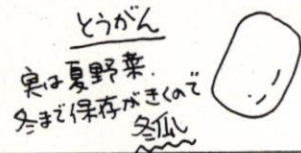 とうがん
実は夏野菜.
冬まで保存がきくので
冬瓜